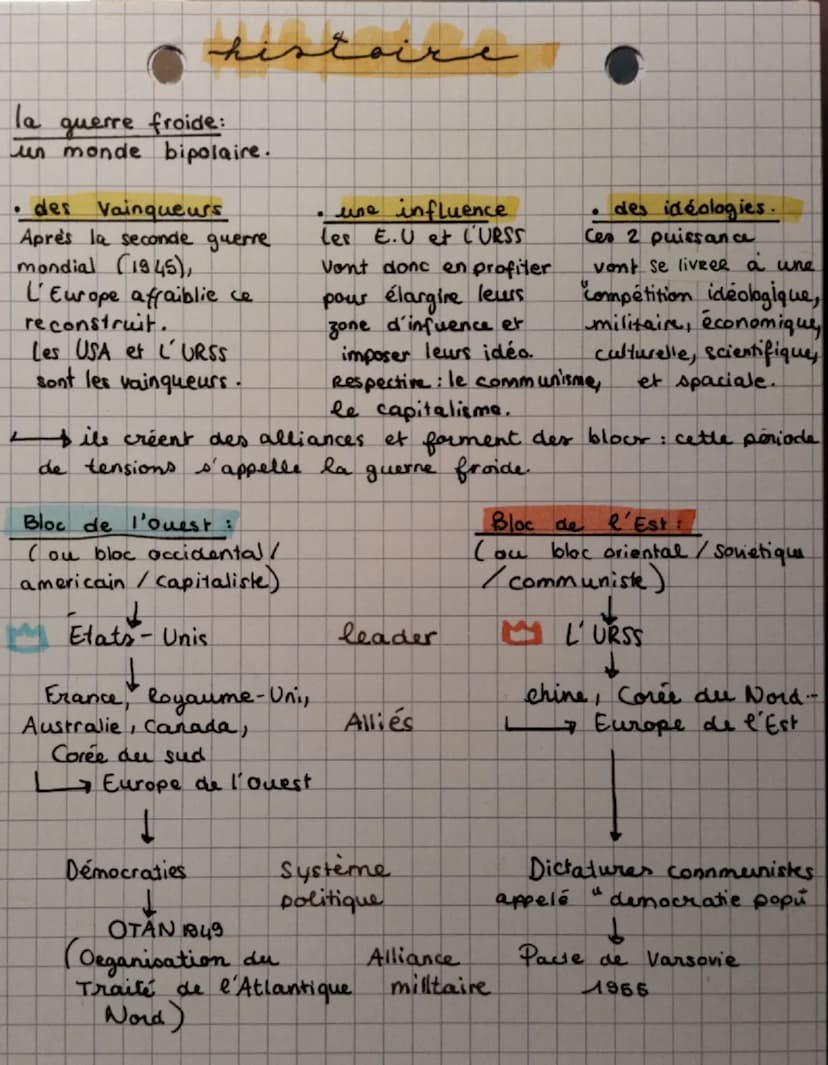 histoire
la guerre froide:
un monde bipolaire.
• des vainqueurs
Après la seconde guerre
mondial (1945),
L'Europe affaiblie ce
reconstruit.
Les USA et L'URSS
sont les vainqueurs.
• une influence
Les E.U et L'URSS
vont donc en profiter
pour élargire leurs
zone d'infuence et
imposer leurs idéo.
Respective : le communisme,
le capitalisme.
• des idéologies.
Ces 2 puissance
vont se livrer à une
"compétition idéologique,
militaire, économique,
culturelle, scientifique,
et spaciale.
↳ ils créent des alliances et forment des blocs : cette période
de tensions s'appelle la guerre froide.
Bloc de l'Ouest :
(ou bloc occidental/
americain / capitaliste)
Bloc de l'Est :
(ou bloc oriental / sovietique
/communiste)
↓ ↓
États-Unis leader L'URSS
↓ ↓
France, Royaume-Uni,
Australie, Canada,
Corée du sud
↳ Europe de l'Ouest
Alliés
chine, Corée du Nord..
↳ Europe de l'Est
↓ ↓
Démocraties
Système
politique
Dictatures communistes
appelé "democratie popu
↓ ↓
OTAN 1949
(Organisation du
Traité de l'Atlantique
Nord)
Alliance
militaire
Pacte de Varsovie
1955